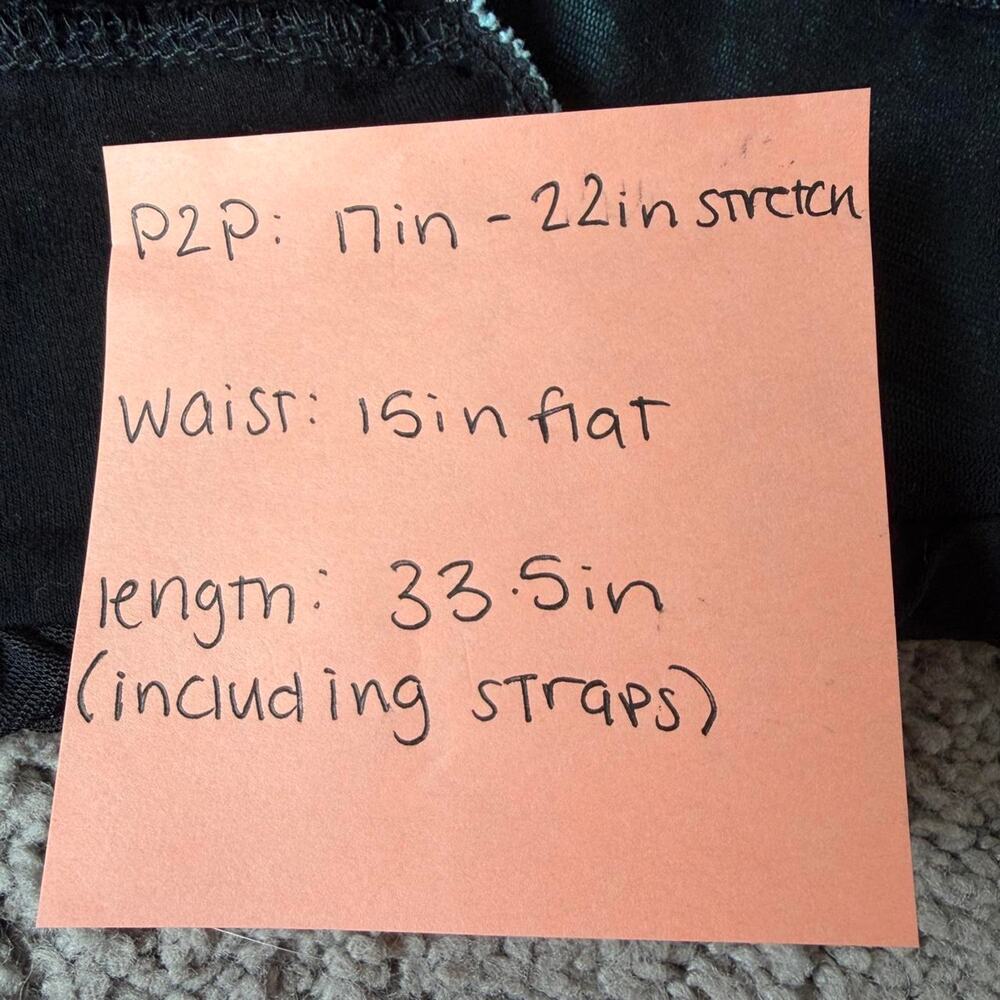 P2P: 17in - 22in stretch
waist: 15in flat
length: 33.5in
(including straps)